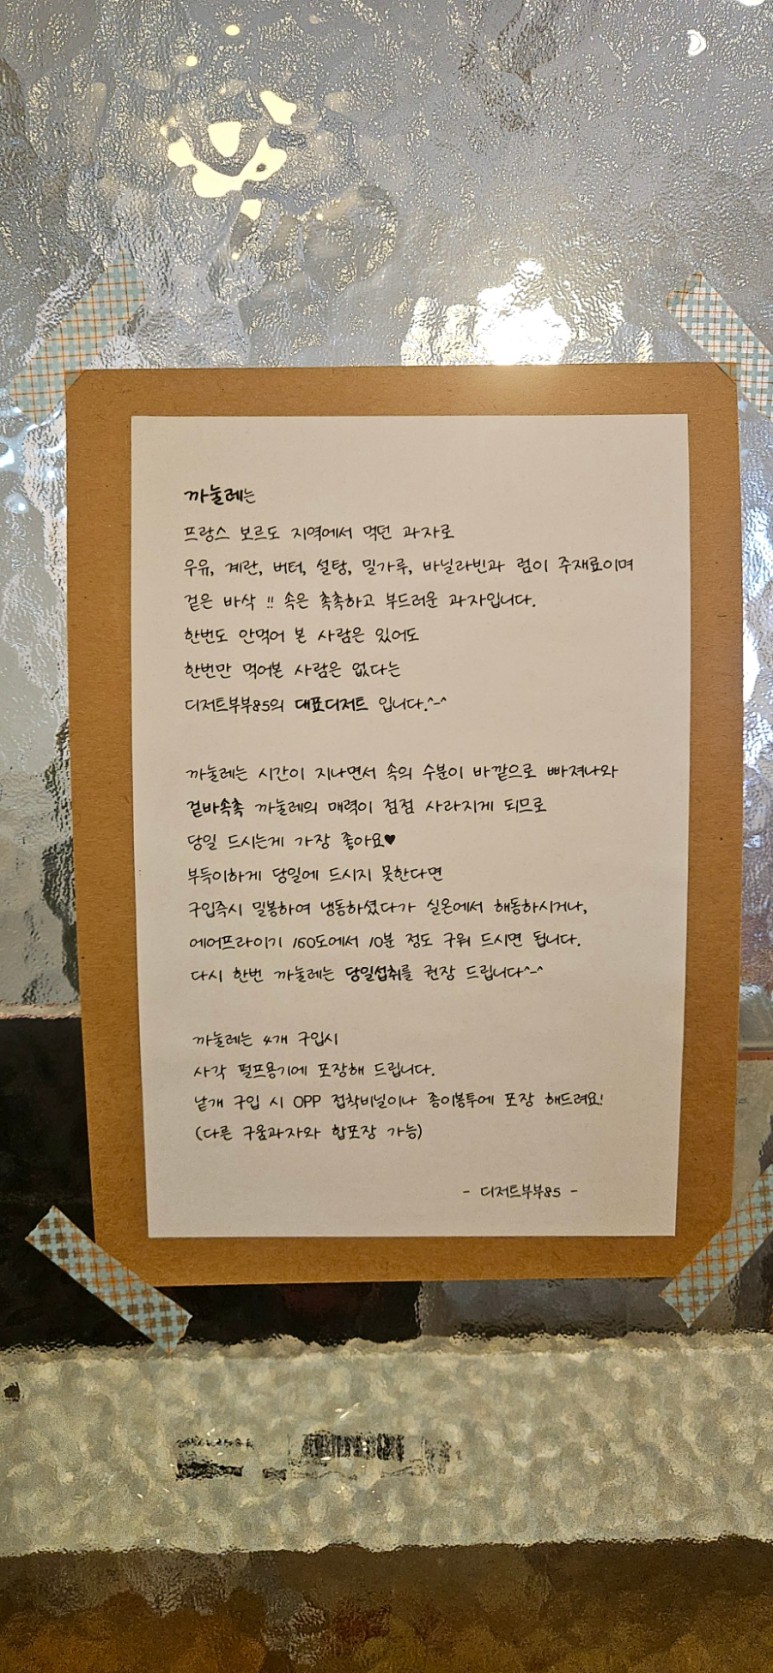 까눌레는
프랑스 보르도 지역에서 먹던 과자로
우유, 계란, 버터, 설탕, 밀가루, 바닐라빈과 럼이 주재료이며
겉은 바삭 !! 속은 촉촉하고 부드러운 과자입니다.
한번도 안먹어 본 사람은 있어도
한번만 먹어본 사람은 없다는
디저트부부85의 대표디저트 입니다.^-^
까눌레는 시간이 지나면서 속의 수분이 바깥으로 빠져나와
겉바속촉 까눌레의 매력이 점점 사라지게 되므로
당일 드시는게 가장 좋아요♥
부득이하게 당일에 드시지 못한다면
구입즉시 밀봉하여 냉동하셨다가 실온에서 해동하시거나,
에어프라이기 160도에서 10분 정도 구워 드시면 됩니다.
다시 한번 까눌레는 당일섭취를 권장 드립니다^-^
까눌레는 4개 구입시
사각 펄프용기에 포장해 드립니다.
낱개 구입 시 OPP 접착비닐이나 종이봉투에 포장 해드려요!
(다른 구움과자와 합포장 가능)
- 디저트부부85 -